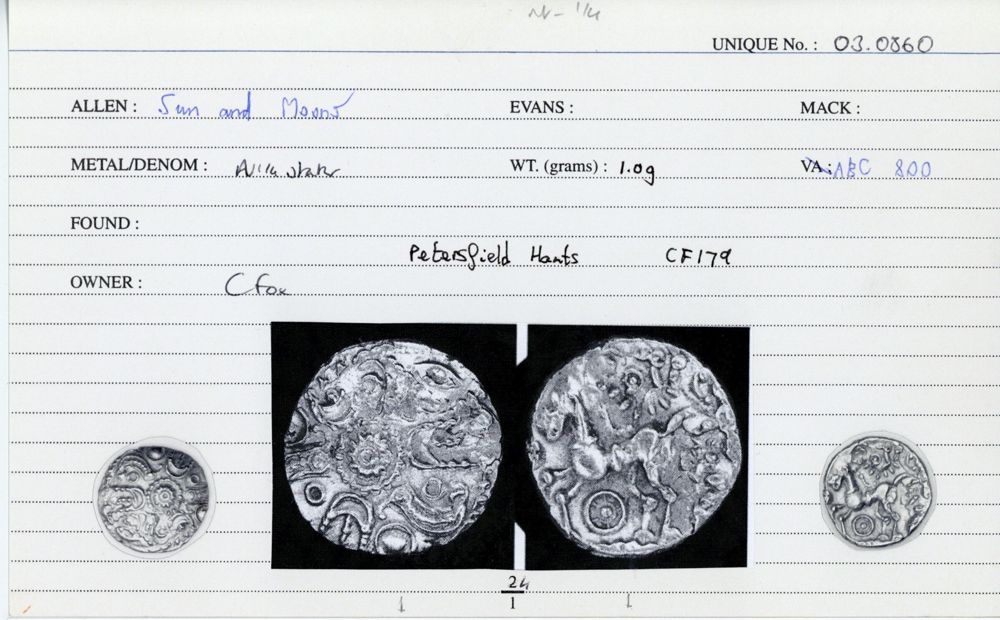 UNIQUE No. : 03.0860
ALLEN : Sun and Moons EVANS : MACK :
METAL/DENOM : WT. (grams) : 1.0g VA: ABC 800
FOUND :
Petersfield Hants CF179
OWNER : C Fox
24
1